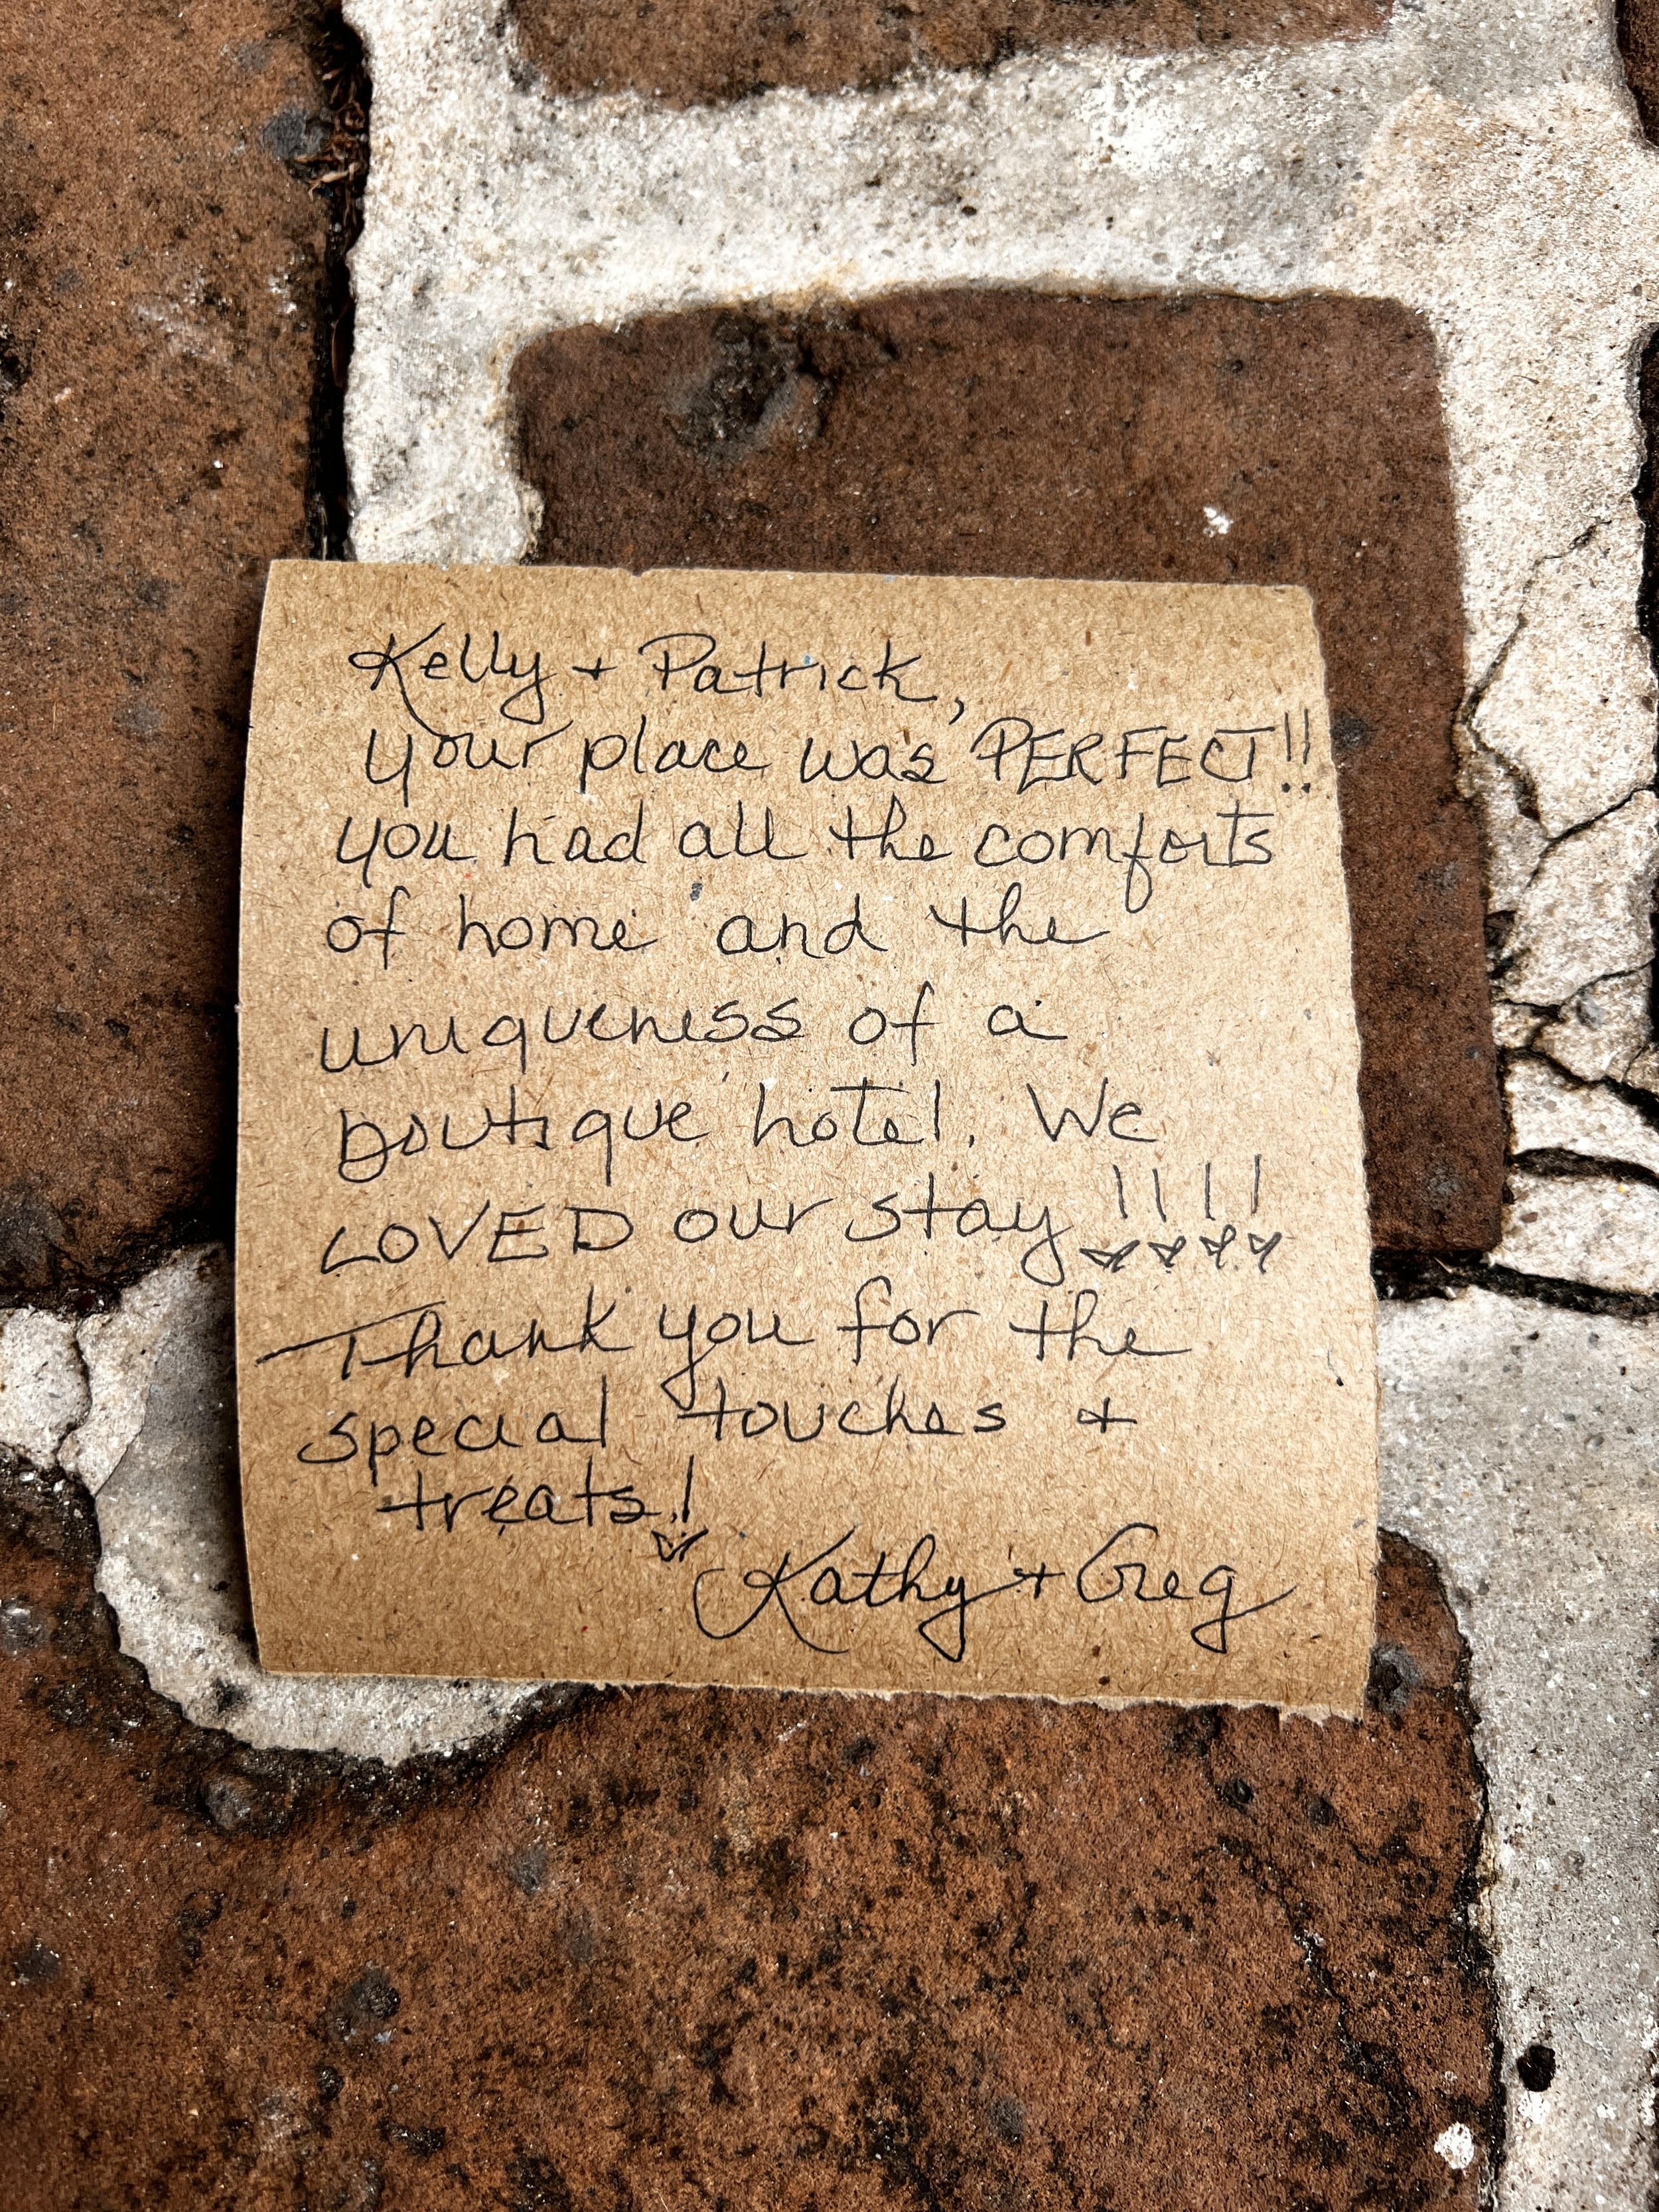 Kelly + Patrick,
your place was PERFECT!!
you had all the comforts
of home and the
uniqueness of a
boutique hotel. We
LOVED our stay!!!!
Thank you for the
special touches +
treats!
Kathy + Greg